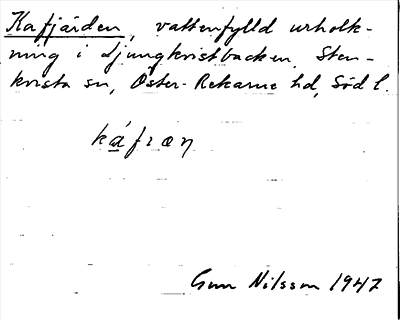 Kafjärden, vattenfylld urholk-
ning i Ljungkvistbacken, Sten-
kvista sn, Öster-Rekarne hd, Söd l.
káfɪæŋ
Gun Nilsson 1947